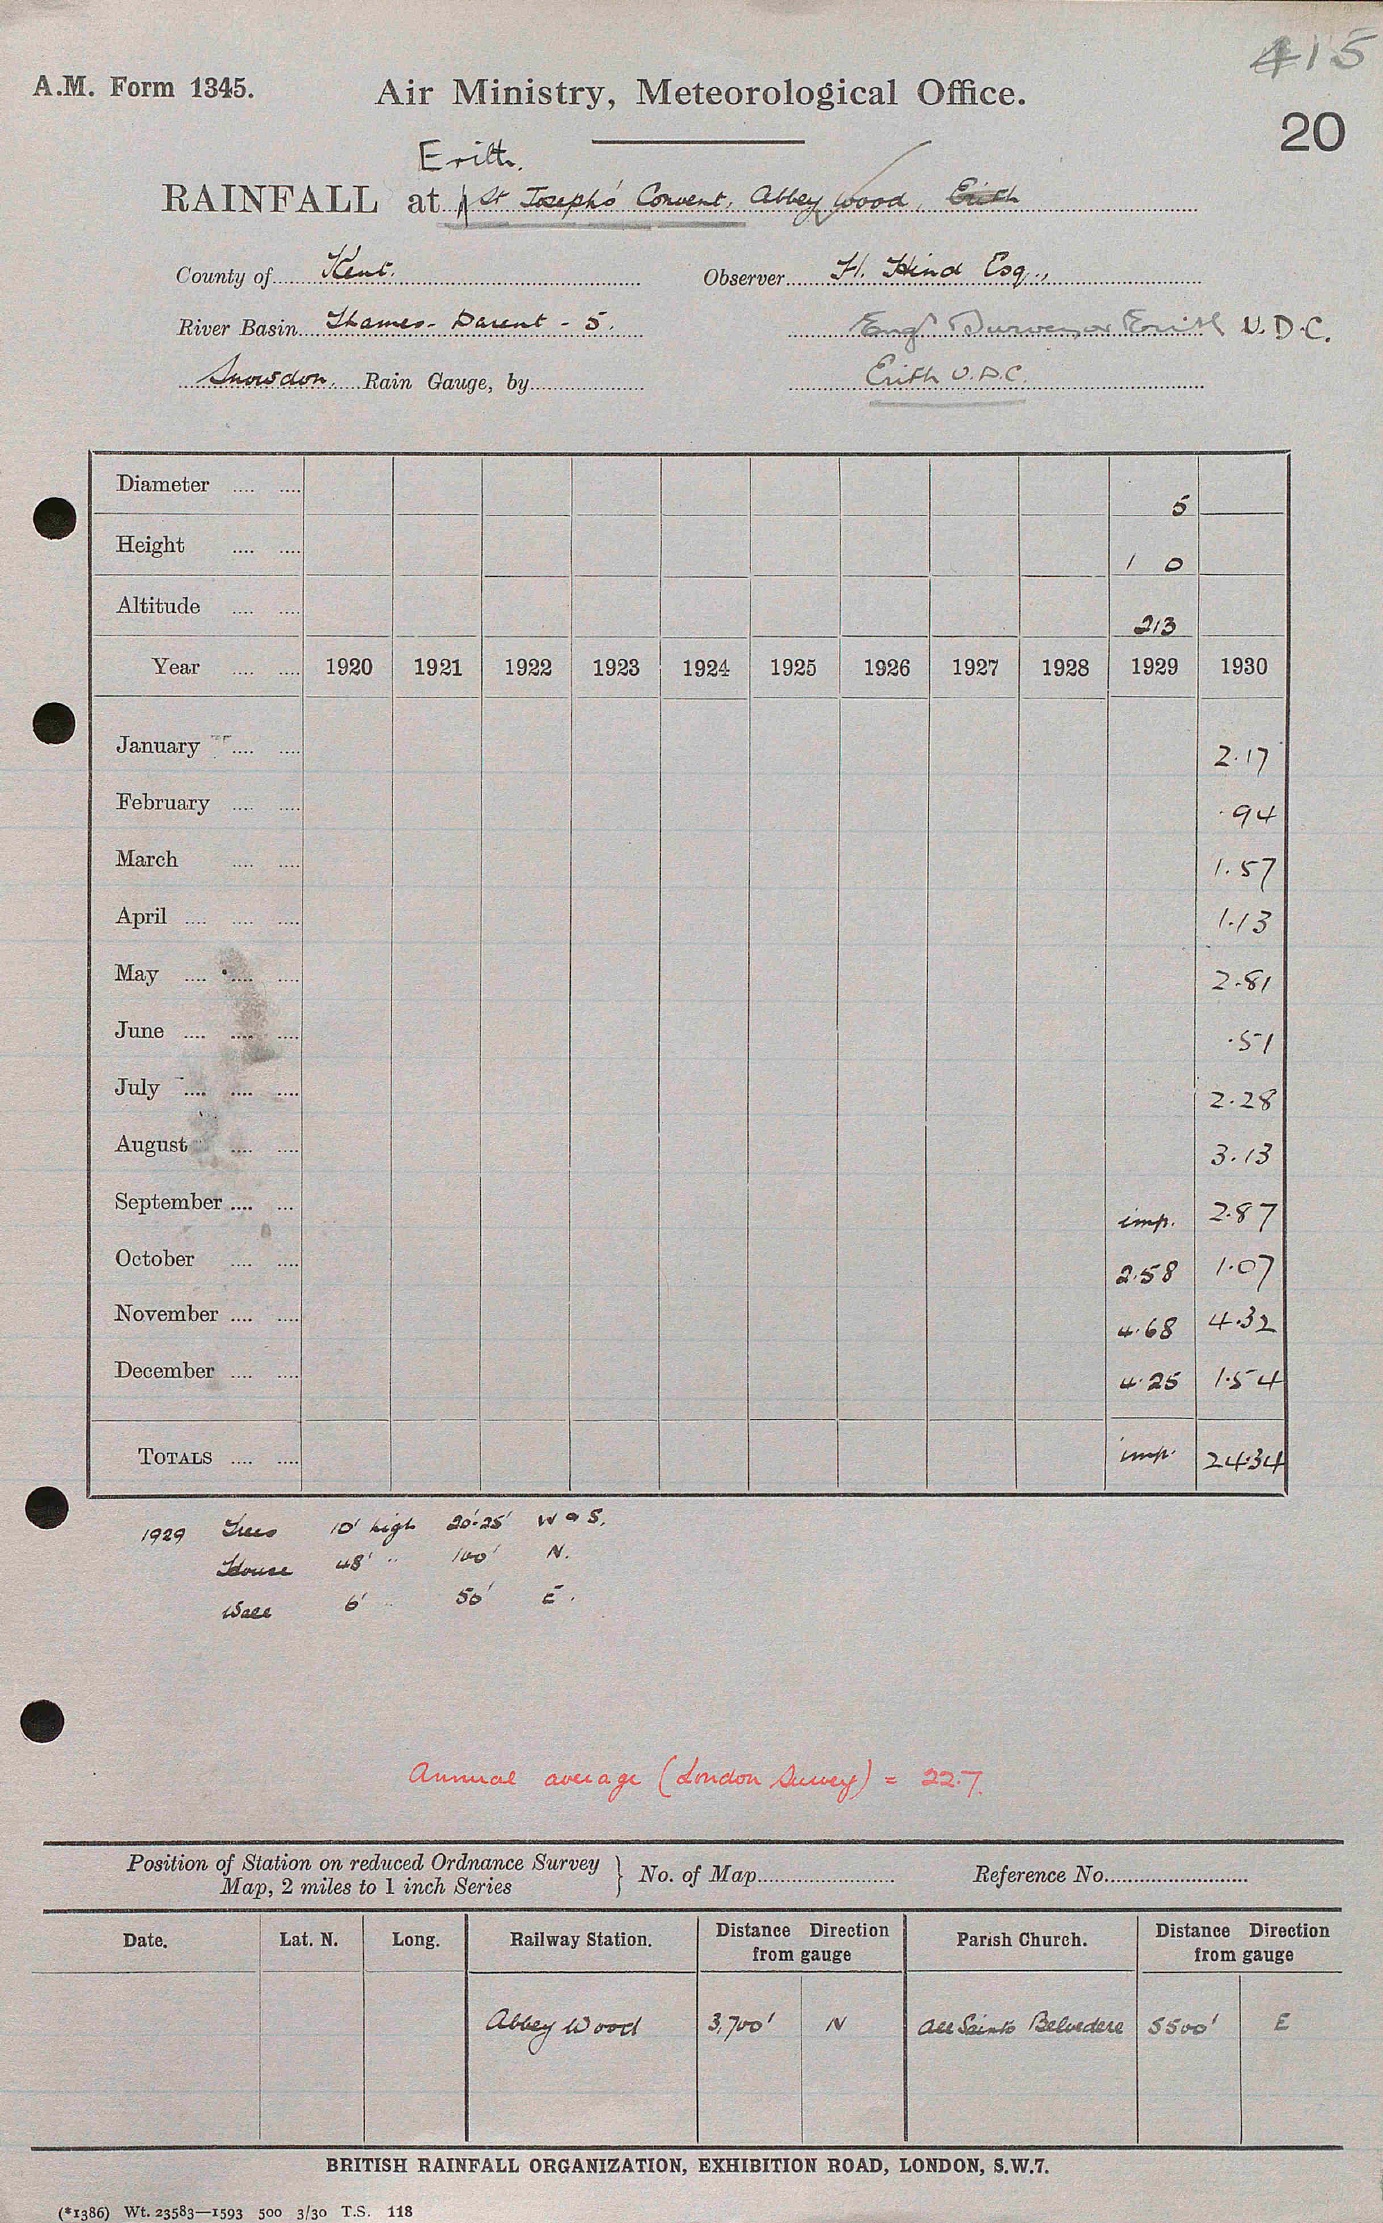 415
A.M. Form 1345.
Air Ministry, Meteorological Office.
20
Erith.
RAINFALL at St Joseph's Convent, Abbey Wood, Erith
County of Kent. Observer H. Hind Esq.,
River Basin Thames - Darent - 5. Engr Surveyor Erith U.D.C.
Snowdon Rain Gauge, by Erith U.D.C.
Diameter .... .... 5
Height .... .... 1 0
Altitude .... .... 213
Year .... .... 1920 1921 1922 1923 1924 1925 1926 1927 1928 1929 1930
January .... .... 2.17
February .... .... .94
March .... .... 1.57
April .... .... .... 1.13
May .... .... .... 2.81
June .... .... .... .51
July .... .... .... 2.28
August .... .... 3.13
September .... ... imp. 2.87
October .... .... 2.58 1.07
November .... .... 4.68 4.32
December .... .... 4.25 1.54
TOTALS .... .... imp. 24.34
1929 Trees 10' high 20'-25' W & S.
House 48' " 100' N.
Wall 6' " 50' E.
Annual average (London Survey) = 22.7.
Position of Station on reduced Ordnance Survey
Map, 2 miles to 1 inch Series } No. of Map Reference No.
Date. Lat. N. Long. Railway Station. Distance Direction from gauge Parish Church. Distance Direction from gauge
Abbey Wood 3,700' N All Saints Belvedere 5500' E
BRITISH RAINFALL ORGANIZATION, EXHIBITION ROAD, LONDON, S.W.7.
(*1386) Wt. 23583—1593 500 3/30 T.S. 118